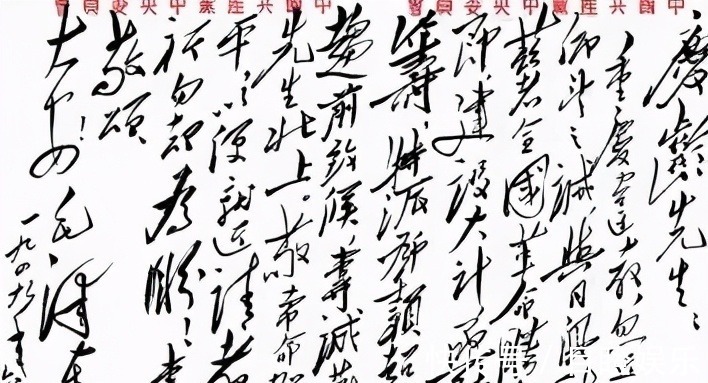 中國共產黨中央委員會
中國共產黨中央委員會
慶齡先生:
重慶違教,忽
仰望之誠,與日俱
茲者全國革命勝
即,建設大計,亟
籌,特派鄧穎超
趨前致候,專誠歡
先生北上。敬希命駕
平,以便就近請教
祈勿却為盼!專
敬頌
大安!毛澤東
一九四九年六